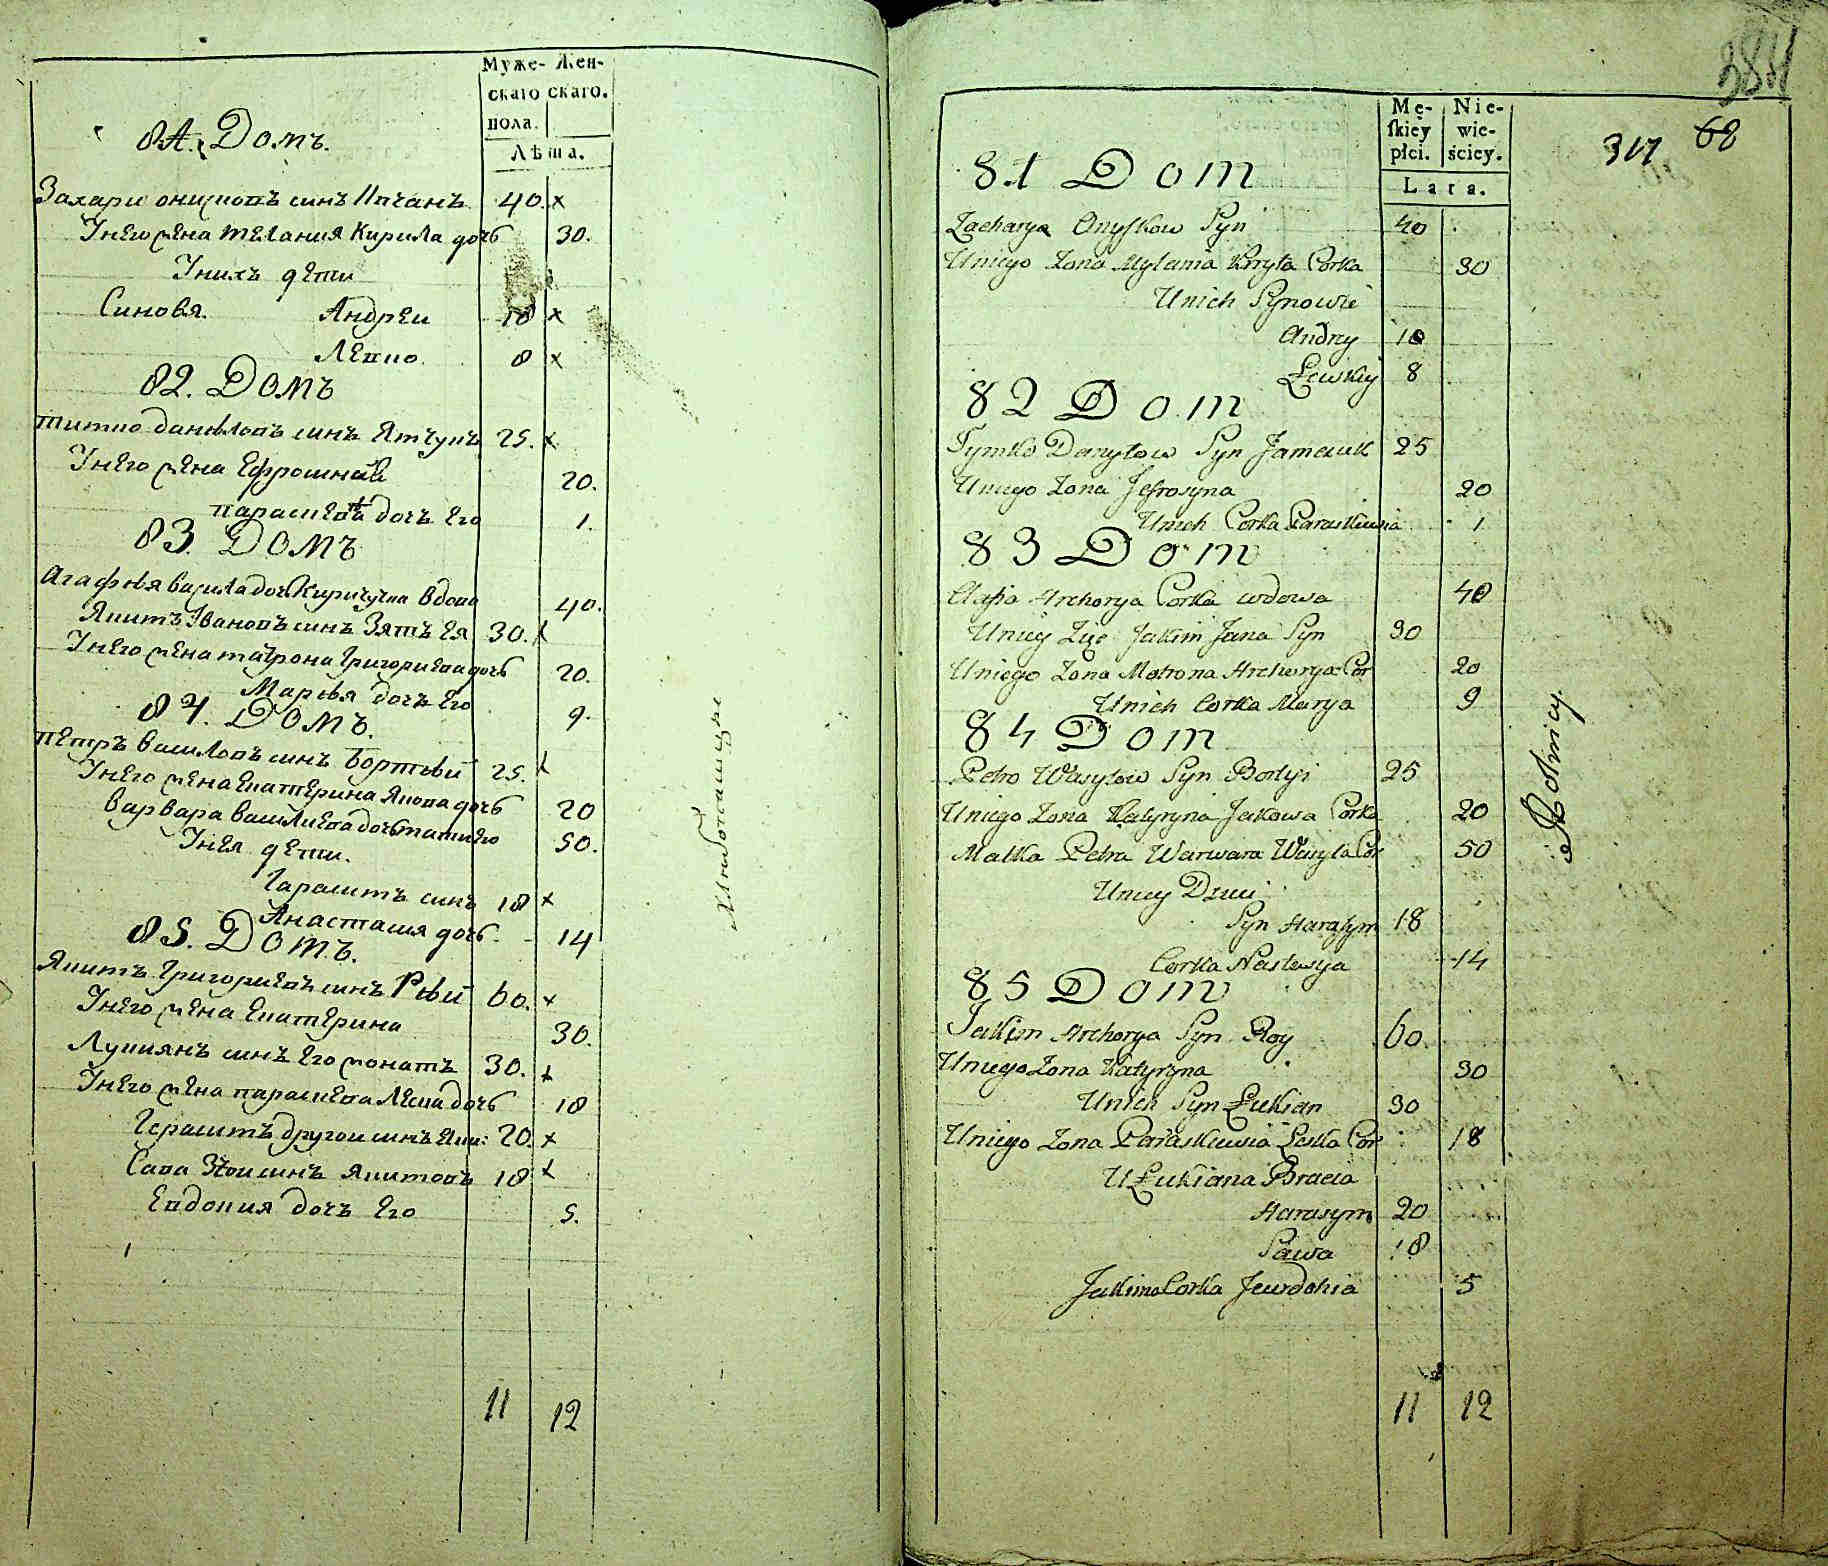 Муже- Жен-
скаго скаго.
пола.
Лѣта.
81. Домъ.
Захари онисковъ синъ 40. x
Унего жена мелания Кирила дочь 30.
Унихъ дети
Синовя. Андреи 18 x
Левко 8 x
82. Домъ
тимко даниловъ синъ Ятчукъ 25. x
Унего жена Ефросиния 20.
параскева дочъ Его 1.
83. Домъ
Агафия васила доч Киричучка вдова 40.
Якимъ Ивановъ синъ Зятъ Ея 30. x
Унего жена матрона григориева дочь 20.
Марья дочъ Его 9.
84. Домъ.
петръ василовъ синъ бортвий 25. x
Унего жена Екатерина Якова дочь 20
варвара василиева дочь мати Его 50.
Унея дети.
Гарасимъ синъ 18 x
Анастасия дочь. 14
85. Домъ.
Якимъ григориевъ синъ Рвий 60. x
Унего жена Екатерина 30.
Лукиянъ синъ Его жонатъ 30. x
Унего жена параскева Леска дочь 18
Герасимъ другои синъ Яки: 20. x
Сава 3тои синъ Якимовъ 18 x
Евдокия дочъ Его 5.
11 12
Хлибопашцы
384
317 68
Mę- Nie-
skiey wie-
płci. ściey.
Lata.
81 Dom
Zacharya Onyskow Syn 40
Uniego Zona Mylania Kiryła Corka 30
Unich Synowie
Andrzy 18
Lewkiy 8
82 Dom
Tymko Danyłow Syn Jamczuk 25
Uniego Zona Jefrosyna 20
Unich Corka Paraskiewia 1
83 Dom
Agapa Archorya Corka wdowa 40
Uniey Zię Jakim Jana Syn 30
Uniego Zona Matrona Archorya Cor 20
Unich Corka Marya 9
84 Dom
Petro Wasyłow Syn Bortyi 25
Uniego Zona Katyryna Jakowa Corka 20
Matka Petra Warwara Wasyla Cor 50
Uniey Dzieci
Syn Harasym 18
Corka Nastasya 14
85 Dom
Jakim Archorya Syn Roy 60
Uniego Zona Katyryna 30
Unich Syn Łukian 30
Uniego Zona Paraskiewia Leska Cor 18
U Łukiana Bracia
Harasym 20
Sawa 18
Jakima Corka Jewdokia 5
11 12
Rolnicy